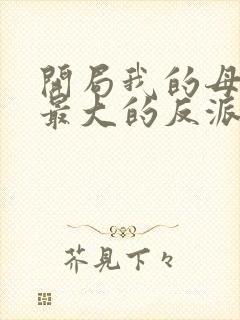 開局我的母
最大的反派
芥見下々